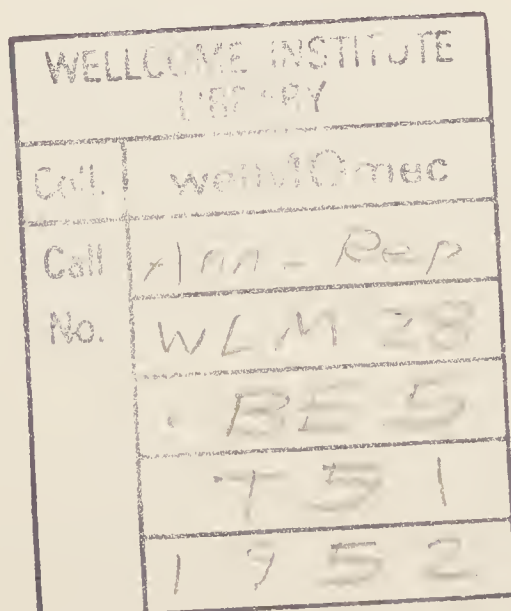 WELLCOME INSTITUTE
LIBRARY
Coll. welMOmec
Call Ann-Rep
No. WLM 28
. BE5
T51
1952